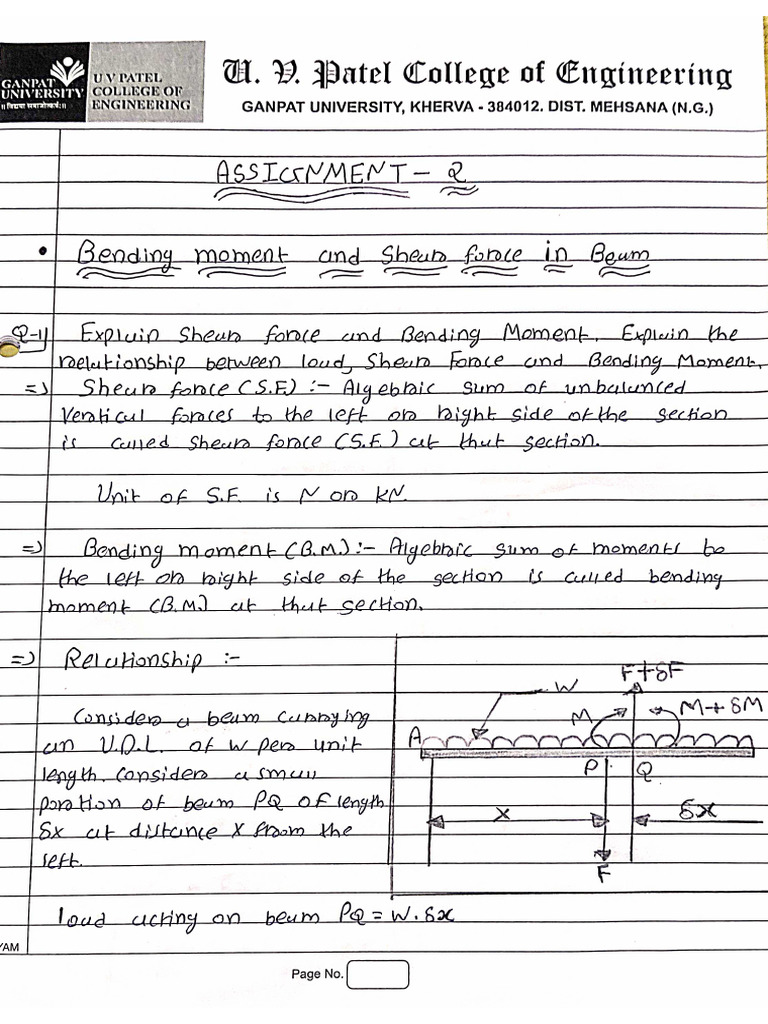 GANPAT UNIVERSITY
॥ विद्यया समाजोत्कर्षः ॥
U V PATEL COLLEGE OF ENGINEERING
U. V. Patel College of Engineering
GANPAT UNIVERSITY, KHERVA - 384012. DIST. MEHSANA (N.G.)
ASSIGNMENT - 2
• Bending moment and Shear force in Beam
Q-1) Explain Shear force and Bending Moment. Explain the
relationship between load, Shear Force and Bending Moment.
=) Shear force (S.F.) :- Algebraic sum of unbalanced
vertical forces to the left or right side of the section
is called shear force (S.F.) at that section.
Unit of S.F. is N or kN.
=) Bending moment (B.M.) :- Algebraic sum of moments to
the left or right side of the section is called bending
moment (B.M.) at that section.
=) Relationship :-
Consider a beam carrying
an U.D.L. of w per unit
length. Consider a small
portion of beam PQ of length
δx at distance x from the
left.
F+δF
W
M
M+δM
A
P
Q
x
δx
F
load acting on beam PQ = W.δx
YAM
Page No.